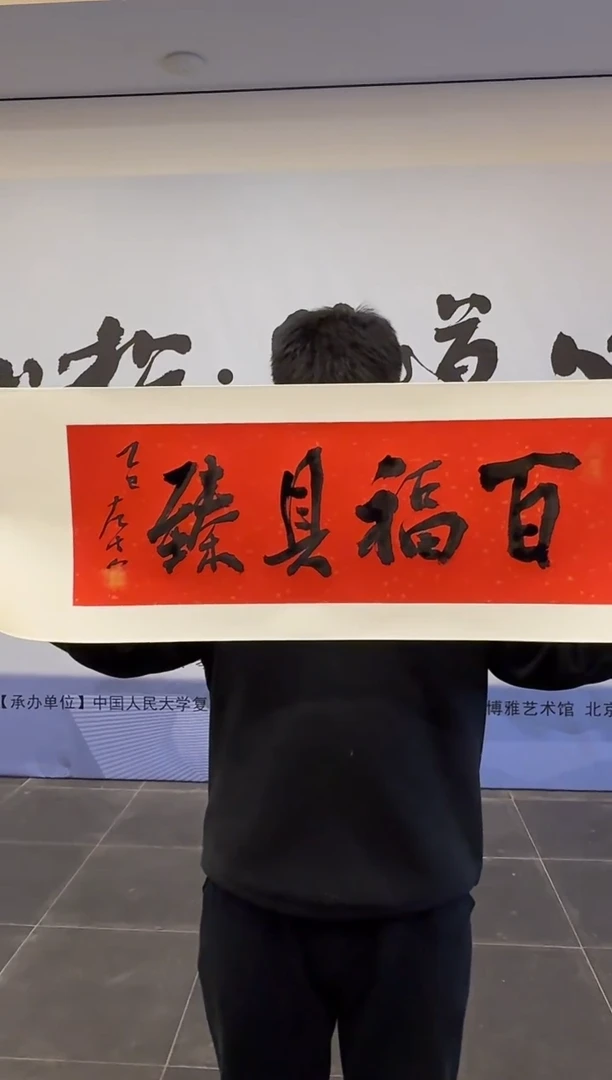 哲·道
百福具臻
乙巳
【承办单位】中国人民大学复
博雅艺术馆 北京